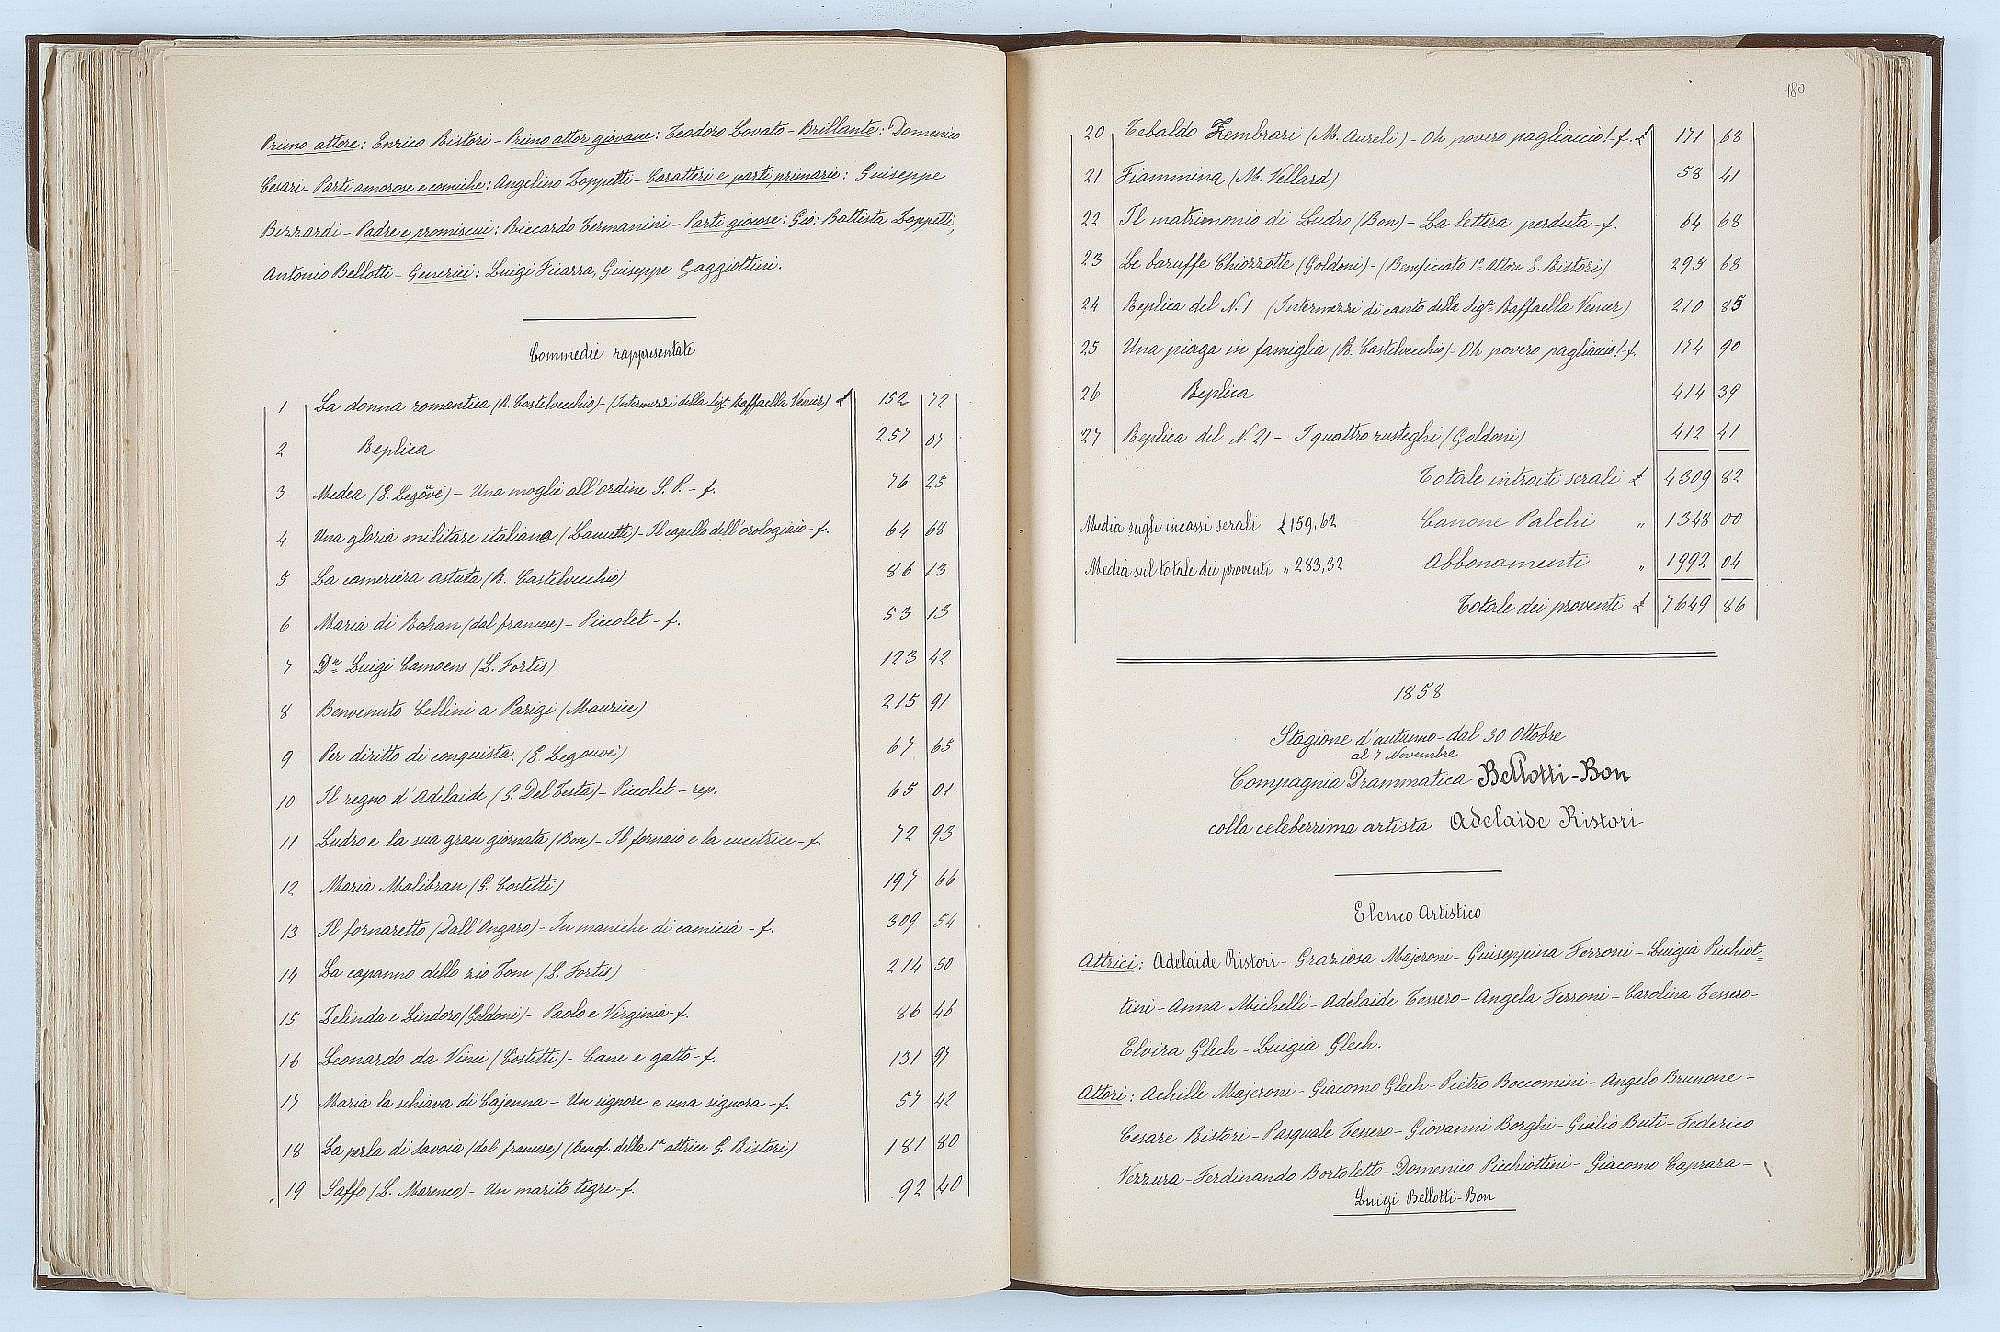 Primo attore: Enrico Ristori - Primo attor giovane: Teodoro Lovato - Brillante: Domenico
Cesari - Parti amorose e comiche: Angelino Zoppetti - Caratteri e parti primarie: Giuseppe
Bizzardi - Padre e promiscui: Riccardo Termanini - Parti giocose: Gio: Battista Zoppetti,
Antonio Bellotti - Generici: Luigi Ficarra, Giuseppe Gazziottini.
Commedie rappresentate
1 La donna romantica (R. Castelvecchio) - (Intermezzi della Sigra Raffaella Venier) £ 152 72
2 Replica 257 07
3 Medea (E. Legövé) - Una moglie all'ordine S. P. - f. 76 25
4 Una gloria militare italiana - Il capello dell'orologiaio - f. 64 68
5 La cameriera astuta (R. Castelvecchio) 86 13
6 Maria di Rohan (dal francese) - Piccolet - f. 53 13
7 Dn Luigi Camoens (L. Fortis) 123 42
8 Benvenuto Cellini a Parigi (Maurice) 215 91
9 Per diritto di conquista (E. Legouvé) 67 65
10 Il regno d'Adelaide (G. Del Testa) - Piccolet - rep. 65 01
11 Ludro e la sua gran giornata (Bon) - Il fornaio e la cucitrice - f. 72 93
12 Maria Malibran (G. Costetti) 197 66
13 Il fornaretto (Dall'Ongaro) - In maniche di camicia - f. 309 54
14 La capanna dello zio Tom (L. Fortis) 214 50
15 Zelinda e Lindoro (Goldoni) - Paolo e Virginia - f. 86 46
16 Leonardo da Vinci (Costetti) - Cane e gatto - f. 131 97
17 Maria la schiava di Cajenna - Un signore e una signora - f. 57 42
18 La perla di Savoia (dal francese) (Benef. della 1a attrice G. Ristori) 181 80
19 Saffo (L. Marenco) - Un marito tigre - f. 92 40
180
20 Tebaldo (M. Aureli) - Oh povero pagliaccio! - f. £ 171 63
21 Fiammina (M. Vellard) 58 41
22 Il matrimonio di Ludro (Bon) - La lettera perduta - f. 64 68
23 Le baruffe Chiozzotte (Goldoni) - (Beneficiato 1o Attore E. Ristori) 293 63
24 Replica del N. 1 (Intermezzi di canto della Sigra Raffaella Venier) 210 85
25 Una piaga in famiglia (R. Castelvecchio) - Oh povero pagliaccio! - f. 174 90
26 Replica 414 39
27 Replica del N. 21 - I quattro rusteghi (Goldoni) 412 41
Totale introiti serali £ 4309 82
Media sugli incassi serali £ 159,62 Canone Palchi " 1348 00
Media sul totale dei proventi " 283,32 Abbonamenti " 1992 04
Totale dei proventi £ 7649 86
1858
Stagione d'autunno - dal 30 Ottobre
al 7 Novembre
Compagnia Drammatica Bellotti-Bon
colla celeberrima artista Adelaide Ristori
Elenco Artistico
Attrici: Adelaide Ristori - Graziosa Majeroni - Giuseppina Ferroni - Luigia Picchiot=
tini - Anna Michelli - Adelaide Tessero - Angela Ferroni - Carolina Tessero -
Elvira Glech - Luigia Glech.
Attori: Achille Majeroni - Giacomo Glech - Pietro Boccomini - Angelo Brunone -
Cesare Ristori - Pasquale Tessero - Giovanni Borghi - Giulio Buti - Federico
Verzura - Ferdinando Bortoletto Domenico Picchiottini - Giacomo Caprara -
Luigi Bellotti-Bon